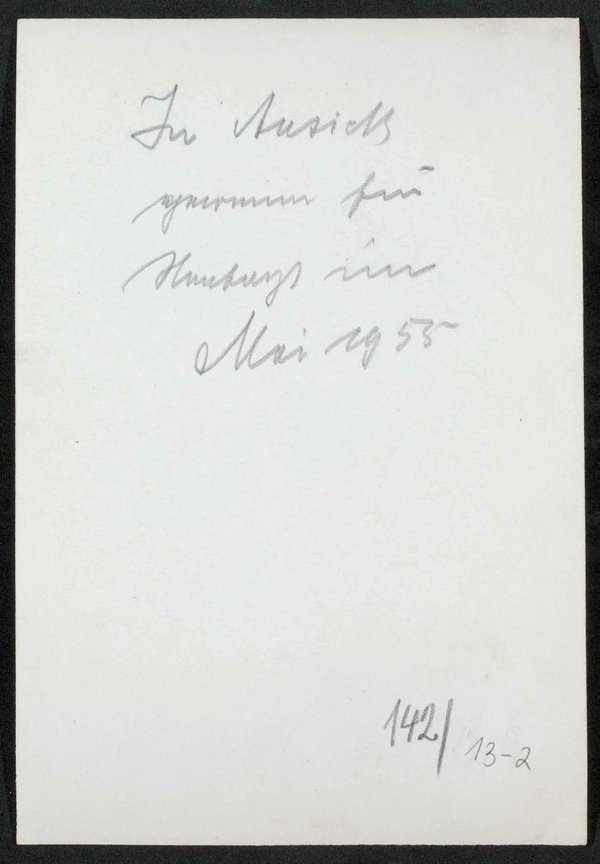 In Aussicht
genommen für
im
Mai 1955
142/
13-2